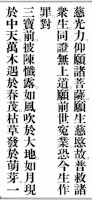 慈光力仰願諸菩薩願生慈愍故普救諸
衆生同證無上道願前世寃業恐今生作
罪對
三寶前披陳懺露如風吹於大地如月現
於中天萬木遇於春茂枯草發於萌芽一